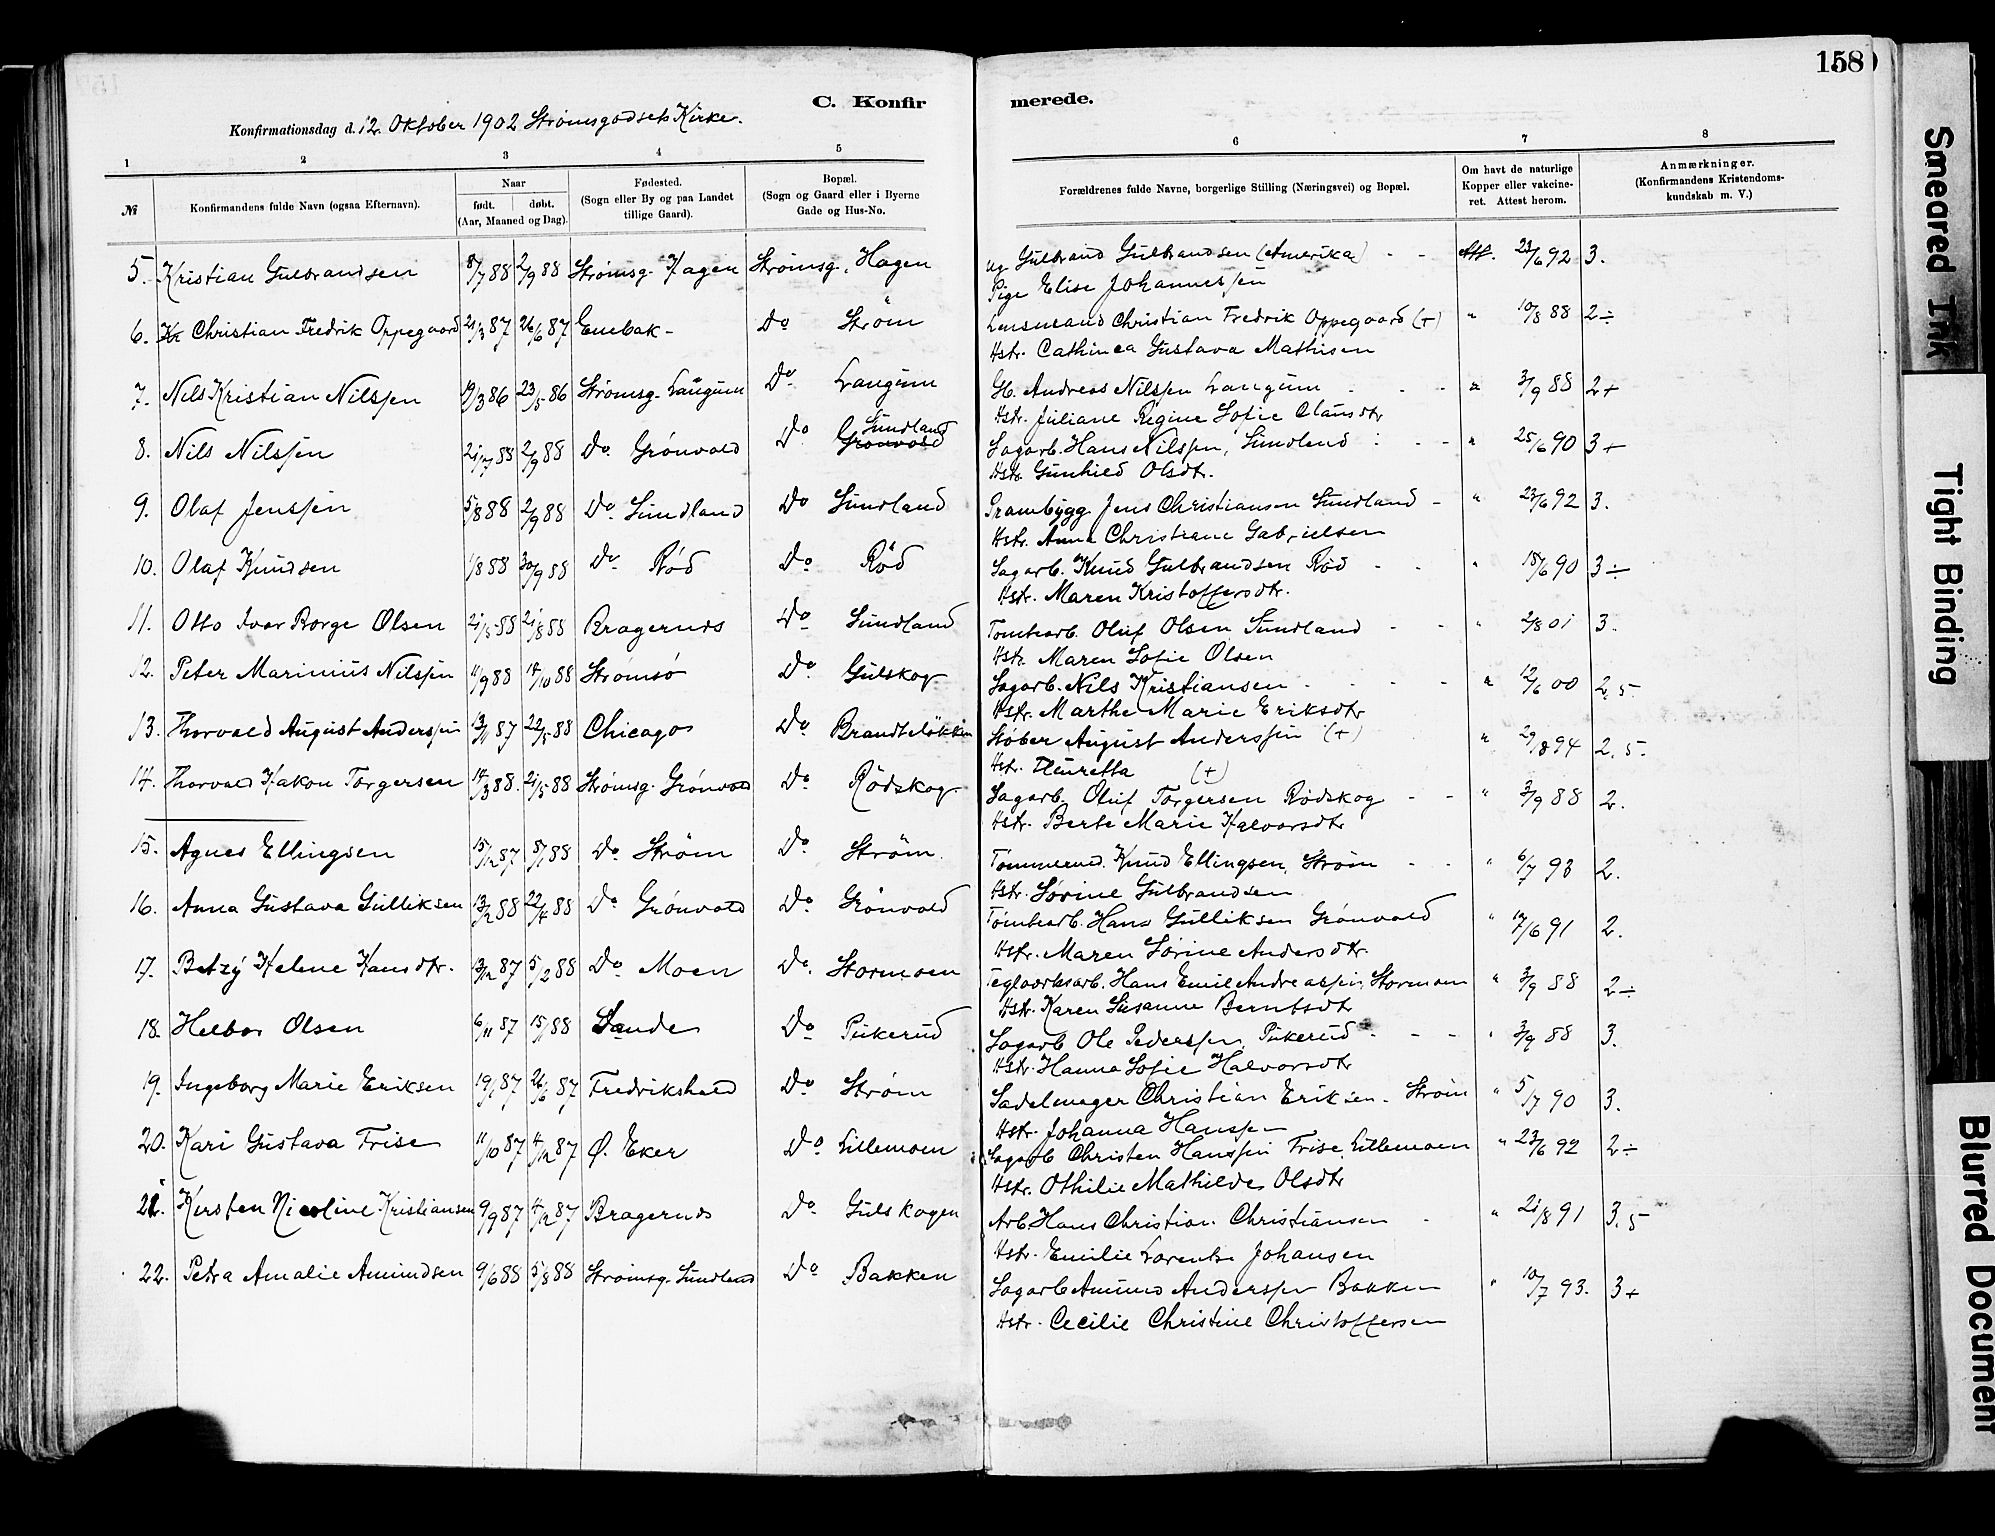 158
C. Konfir merede.
Konfirmationsdag d. 12. Oktober 1902 Strømsgodsets Kirke.
1 2 3 4 5 6 7 8
№ Konfirmandens fulde Navn (ogsaa Efternavn). Naar født. døbt. (Aar, Maaned og Dag). Fødested. (Sogn eller By og paa Landet tillige Gaard). Bopæl. (Sogn og Gaard eller i Byerne Gade og Hus-No. Forældrenes fulde Navne, borgerlige Stilling (Næringsvei) og Bopæl. Om havt de naturlige Kopper eller vakcineret. Attest herom. Anmærkninger. (Konfirmandens Kristendomskundskab m. V.)
5. Kristian Gulbrandsen 8/7 88 2/9 88 Strømsg. Hagen Strømsg. Hagen ug Gulbrand Gulbrandsen (Amerika) Att. 23/6 92 3.
Pige Elise Johannessen
6. Christian Fredrik Oppegaard 21/3 87 26/6 87 Enebak Do Strøm Lensmand Christian Fredrik Oppegaard (+) " 10/8 88 2÷
Hstr. Cathinca Gustava Mathisen
7. Nils Kristian Nilssen 19/3 86 23/5 86 Strømsg. Langum Do Langum Gb. Andreas Nilssen Langum " 3/9 88 2+
Hstr. Juliane Regine Sofie Clausdtr
8. Nils Nilssen 21/7 88 2/9 88 Do Grønvold Do Grønvold Sundland Sagarb. Hans Nilssen, Sundland " 25/6 90 3+
Hstr. Gunhild Olsdtr.
9. Olaf Jenssen 5/8 88 2/9 88 Do Sundland Do Sundland Prambygg Jens Christiansen Sundland " 23/6 92 3.
Hstr. Anna Christiane Gabrielsen
10. Olaf Knudsen 1/8 88 30/9 88 Do Rød Do Rød Sagarb. Knud Gulbrandsen Rød " 18/6 90 3÷
Hstr. Maren Kristoffersdtr.
11. Otto Ivar Borge Olsen 21/5 88 21/8 88 Bragernes Do Sundland Tomtearb. Oluf Olsen Sundland " 2/8 01 3.
Hstr. Maren Sofie Olsen
12. Peter Marinius Nilssen 11/9 88 14/10 88 Strømsø Do Gulskog Sagarb. Nils Kristiansen " 12/6 00 2,5.
Hstr. Marthe Marie Eriksdtr
13. Thorvald August Anderssen 13/11 87 22/5 88 Chicago Do Brandteløkken Støber August Anderssen (+) " 29/8 94 2,5.
Hstr. Henretta (+)
14. Thorvald Hakon Torgersen 14/3 88. 21/5 88 Strømsg. Grønvold Do Rødskog Sagarb. Oluf Torgersen Rødskog " 3/9 88 2.
Hstr. Berte Marie Halvorsdtr
15. Agnes Ellingsen 15/12 87 8/1 88 Do Strøm Do Strøm. Tømmermd. Knud Ellingsen, Strøm " 6/7 93 2.
Hstr. Sørine Gulbrandsen
16. Anna Gustava Gulliksen 13/2 88 22/4 88 Do Grønvold Do Grønvold Tømtearb. Hans Gulliksen Grønvold " 17/6 91 2.
Hstr. Maren Sørine Andersdtr
17. Betzy Helene Hansdtr. 13/12 87 5/2 88 Do Moen Do. Stormoen Teglværksarb. Hans Emil Andreassen, Stormoen " 3/9 88 2÷
Hstr. Karen Susanne Berntsdtr
18. Helbor Olsen 6/11 87 15/1 88 Sande Do Pukerud Sagarb Ole Pederssen, Pukerud " 3/9 88 3.
Hstr. Hanna Sofie Halvorsdtr
19. Ingeborg Marie Eriksen 19/1 87 26/6 87 Fredrikshald Do Strøm Sadelmager Christian Eriksen. Strøm " 5/7 90 3.
Hstr. Johanna Hanssen
20. Kari Gustava Frise 11/10 87 4/12 87 Ø. Eker Do Lillemoen Sagarb Christen Hanssen Frise, Lillemoen " 23/6 92 2÷
Hstr. Othilie Mathilde Olsdtr
21. Kirsten Nicoline Kristiansen 9/9 87 4/12 87 Bragernes Do Gulskogen Arb. Hans Christian Christiansen " 21/8 91 3.5
Hstr. Emilie Lorentse Johansen
22. Petra Amalie Amundsen 9/6 88 5/8 88 Strømsg. Sundland Do Bakken Sagarb Amund Anderssen Bakken " 10/7 93. 3+
Hstr. Cecilie Christine Christoffersen
Smeared Ink
Tight Binding
Blurred Document